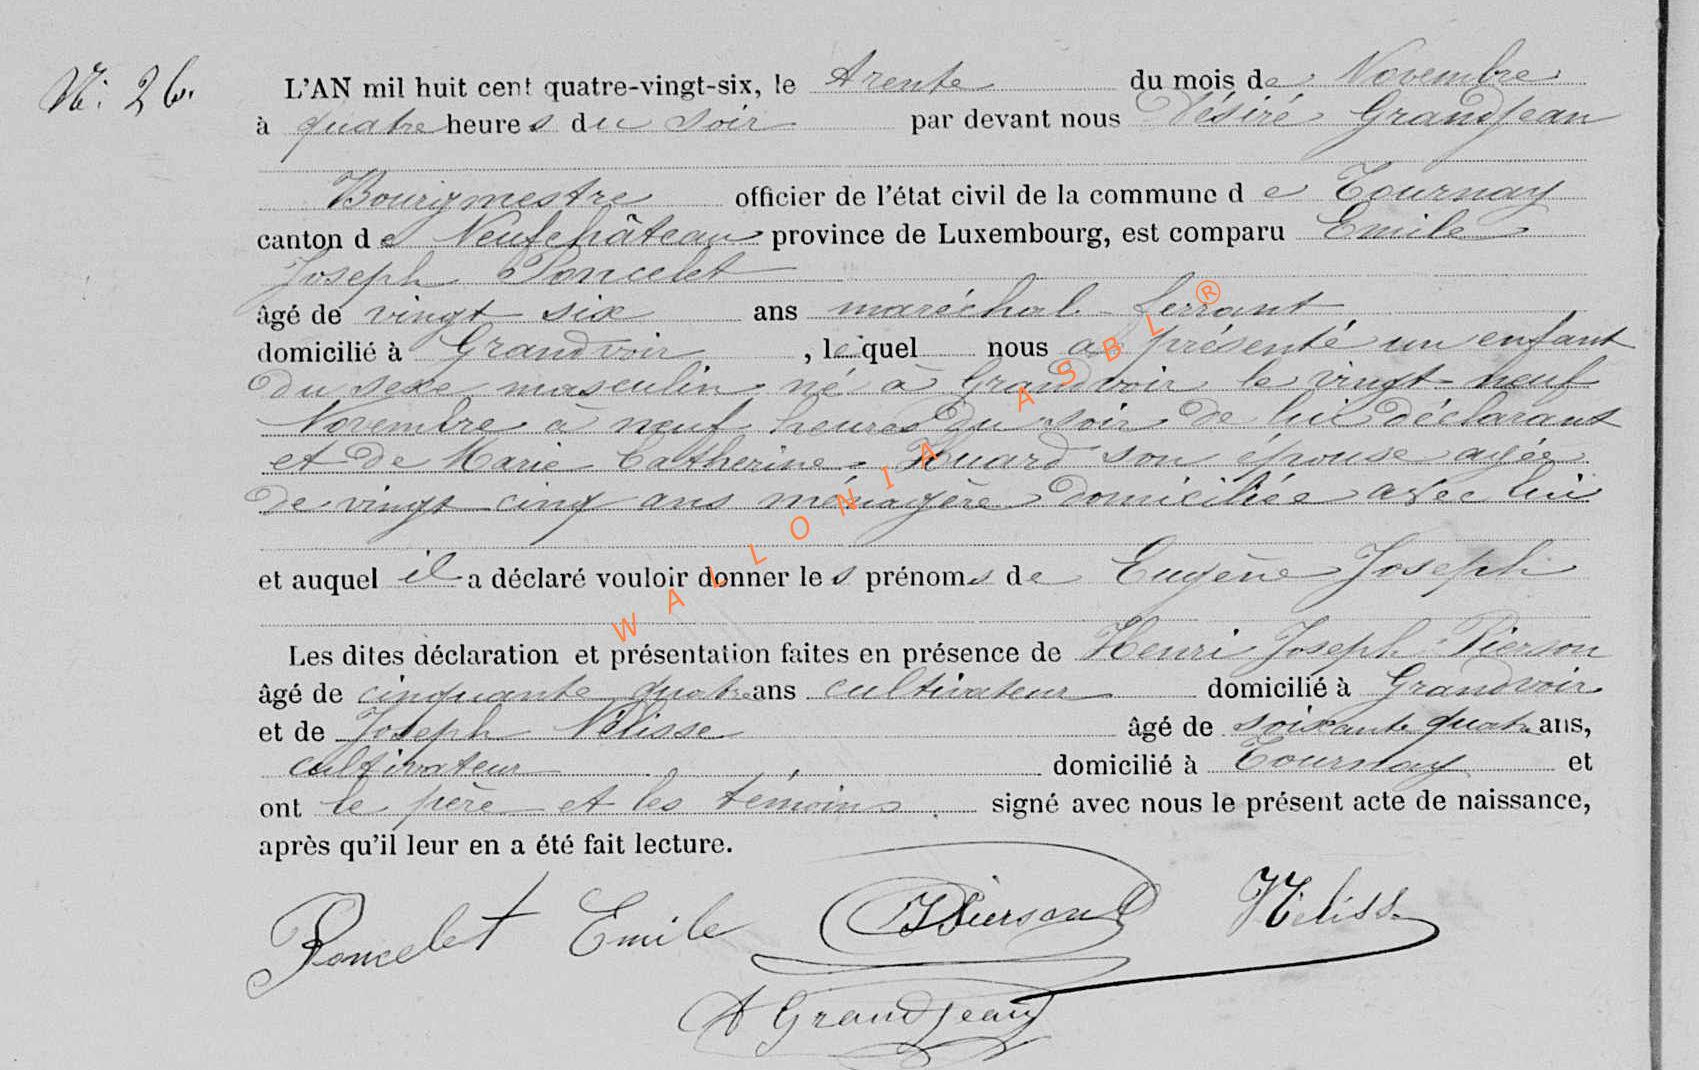 N: 26.
L'AN mil huit cent quatre-vingt-six, le trente du mois de Novembre
à quatre heures du soir par devant nous Désiré Grandjean
Bourgmestre officier de l'état civil de la commune de Tournay
canton de Neufchâteau province de Luxembourg, est comparu Emile
Joseph Poncelet
âgé de vingt six ans maréchal-ferrant
domicilié à Grandvoir, lequel nous a présenté un enfant
du sexe masculin né à Grandvoir le vingt neuf
Novembre à neuf heures du soir de lui déclarant
et de Marie Catherine Huard son épouse agée
de vingt cinq ans ménagère domiciliée avec lui
et auquel il a déclaré vouloir donner les prénoms de Eugène Joseph
Les dites déclaration et présentation faites en présence de Henri Joseph Pierson
âgé de cinquante quatre ans cultivateur domicilié à Grandvoir
et de Joseph Nélisse âgé de soixante quatre ans,
cultivateur domicilié à Tournay et
ont le père et les témoins signé avec nous le présent acte de naissance,
après qu'il leur en a été fait lecture.
Poncelet Emile Pierson Nélisse
Grandjean
WALLONIA ASBL ®